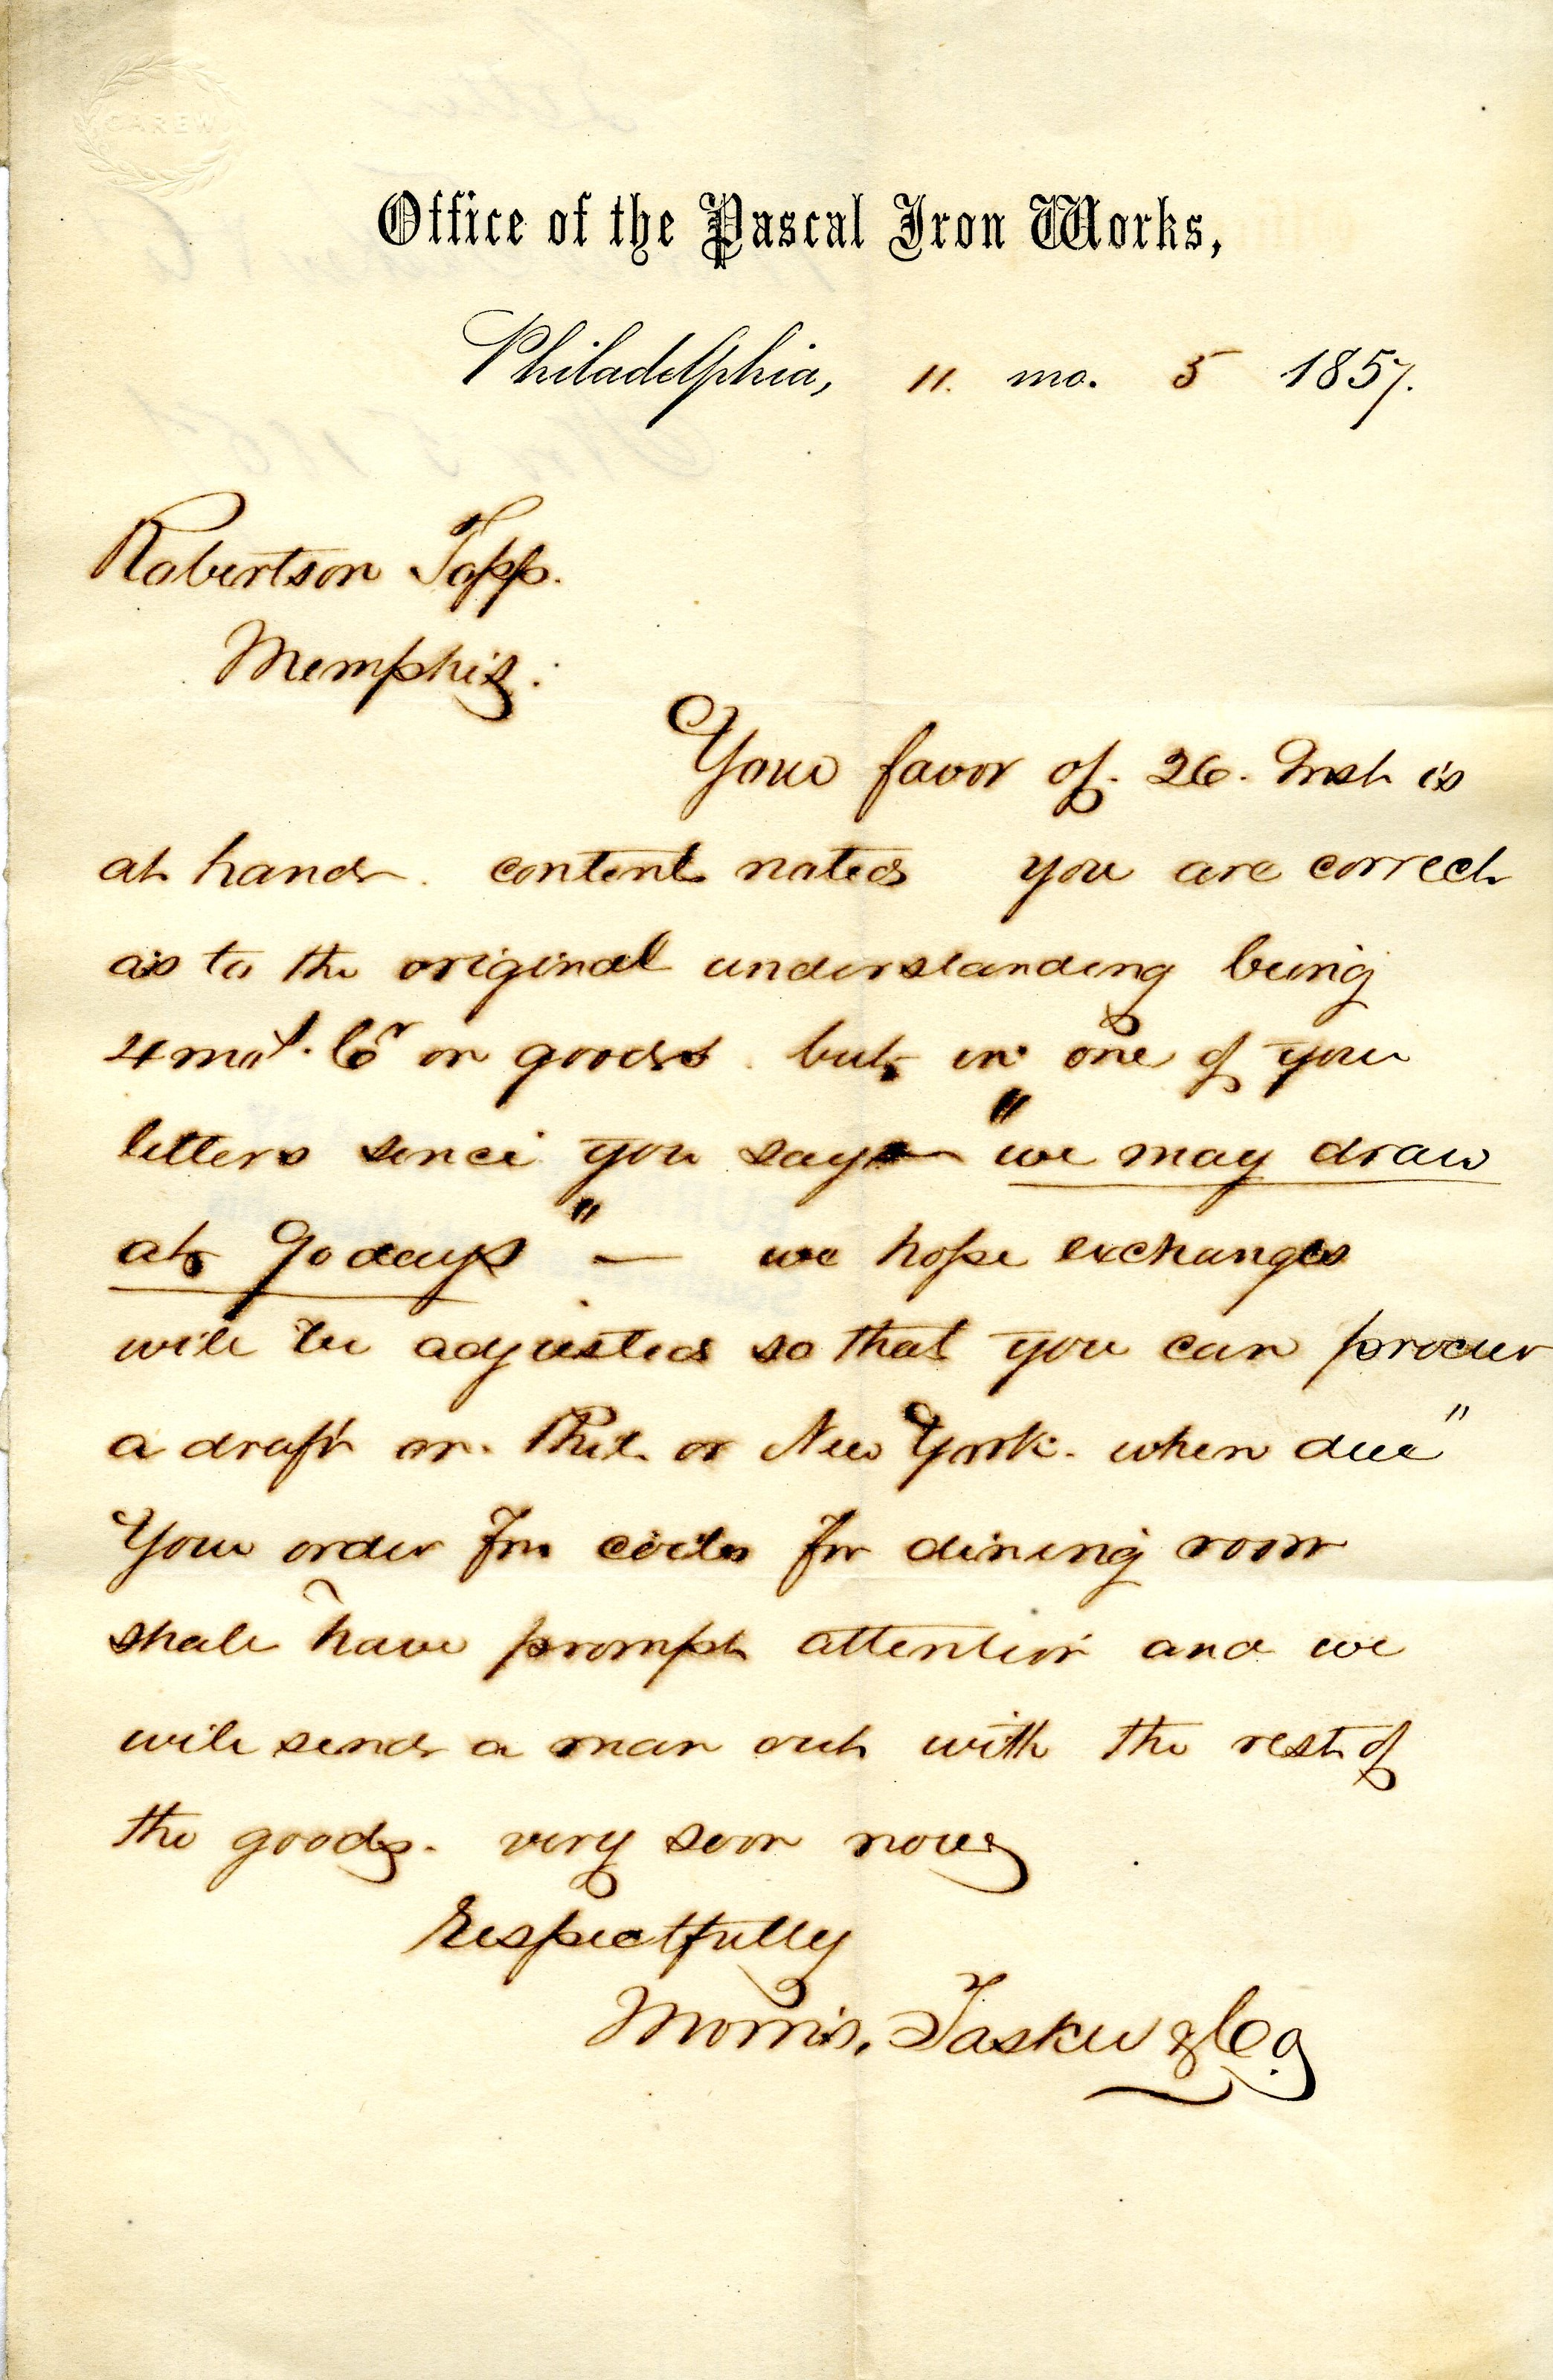 CAREW
Office of the Pascal Iron Works,
Philadelphia, 11. mo. 5 1857.
Robertson Topp.
Memphis.
Your favor of. 26. Inst is
at hand. content noted you are correct
as to the original understanding being
4 mos. Cr on goods. but in one of your
letters since you say — "we may draw
at 90 days" — we hope exchanges
will be adjusted so that you can procur
a draft on. Phil. or New York. when due"
Your order for coils for dining room
shall have prompt attention and we
will send a man out with the rest of
the goods. very soon now
Respectfully
Morris, Tasker & Co.